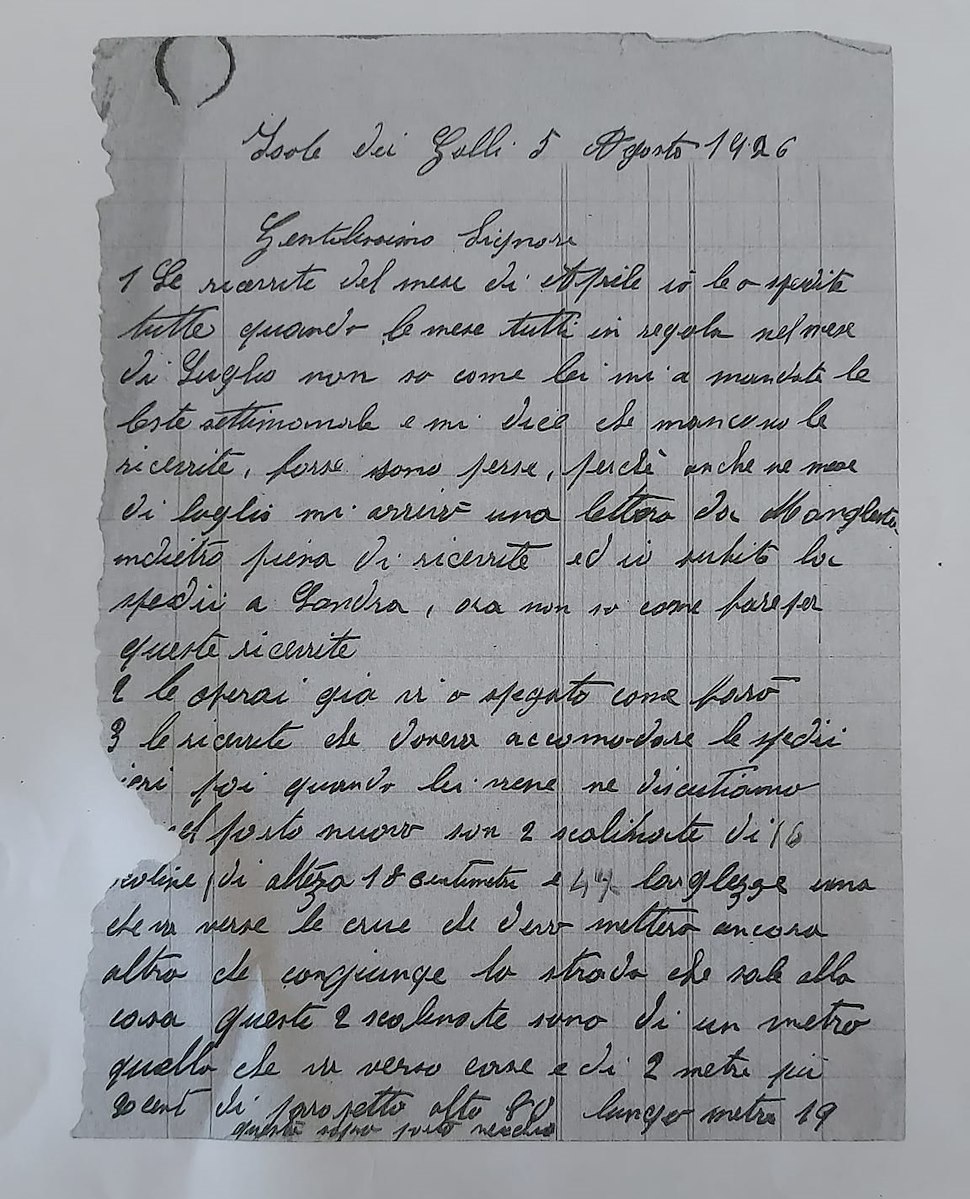 Isole dei Galli 5 Agosto 1926
Gentilissimo Signore
1 Le ricevute del mese di Aprile io le o spedite
tutte quando le mese tutti in regola nel mese
di Luglio non so come lei mi a mandate le
leste settimanale e mi dice che mancano le
ricevite, forse sono perse, perchè anche ne mese
di luglio mi arrivò una lettera da
indietro piena di ricevite ed io subito la
spedii a Londra, ora non so come fare per
queste ricevite
2 le operai già vi o spegato come farò
3 le ricevite che doveva accomodare le spedii
ieri poi quando lei viene ne discutiamo
el posto nuovo son 2 scalinate di 16
scaline di alteza 18 centimetri e 47 larglezze una
che va verse le che devo mettere ancora
altra che congiunge la strada che sale alla
casa queste 2 scalinate sono di un metro
quella che va verso e di 2 metri più
20 cent di parapetto alto 80 lungo metri 19
questo sopra posto vecchio